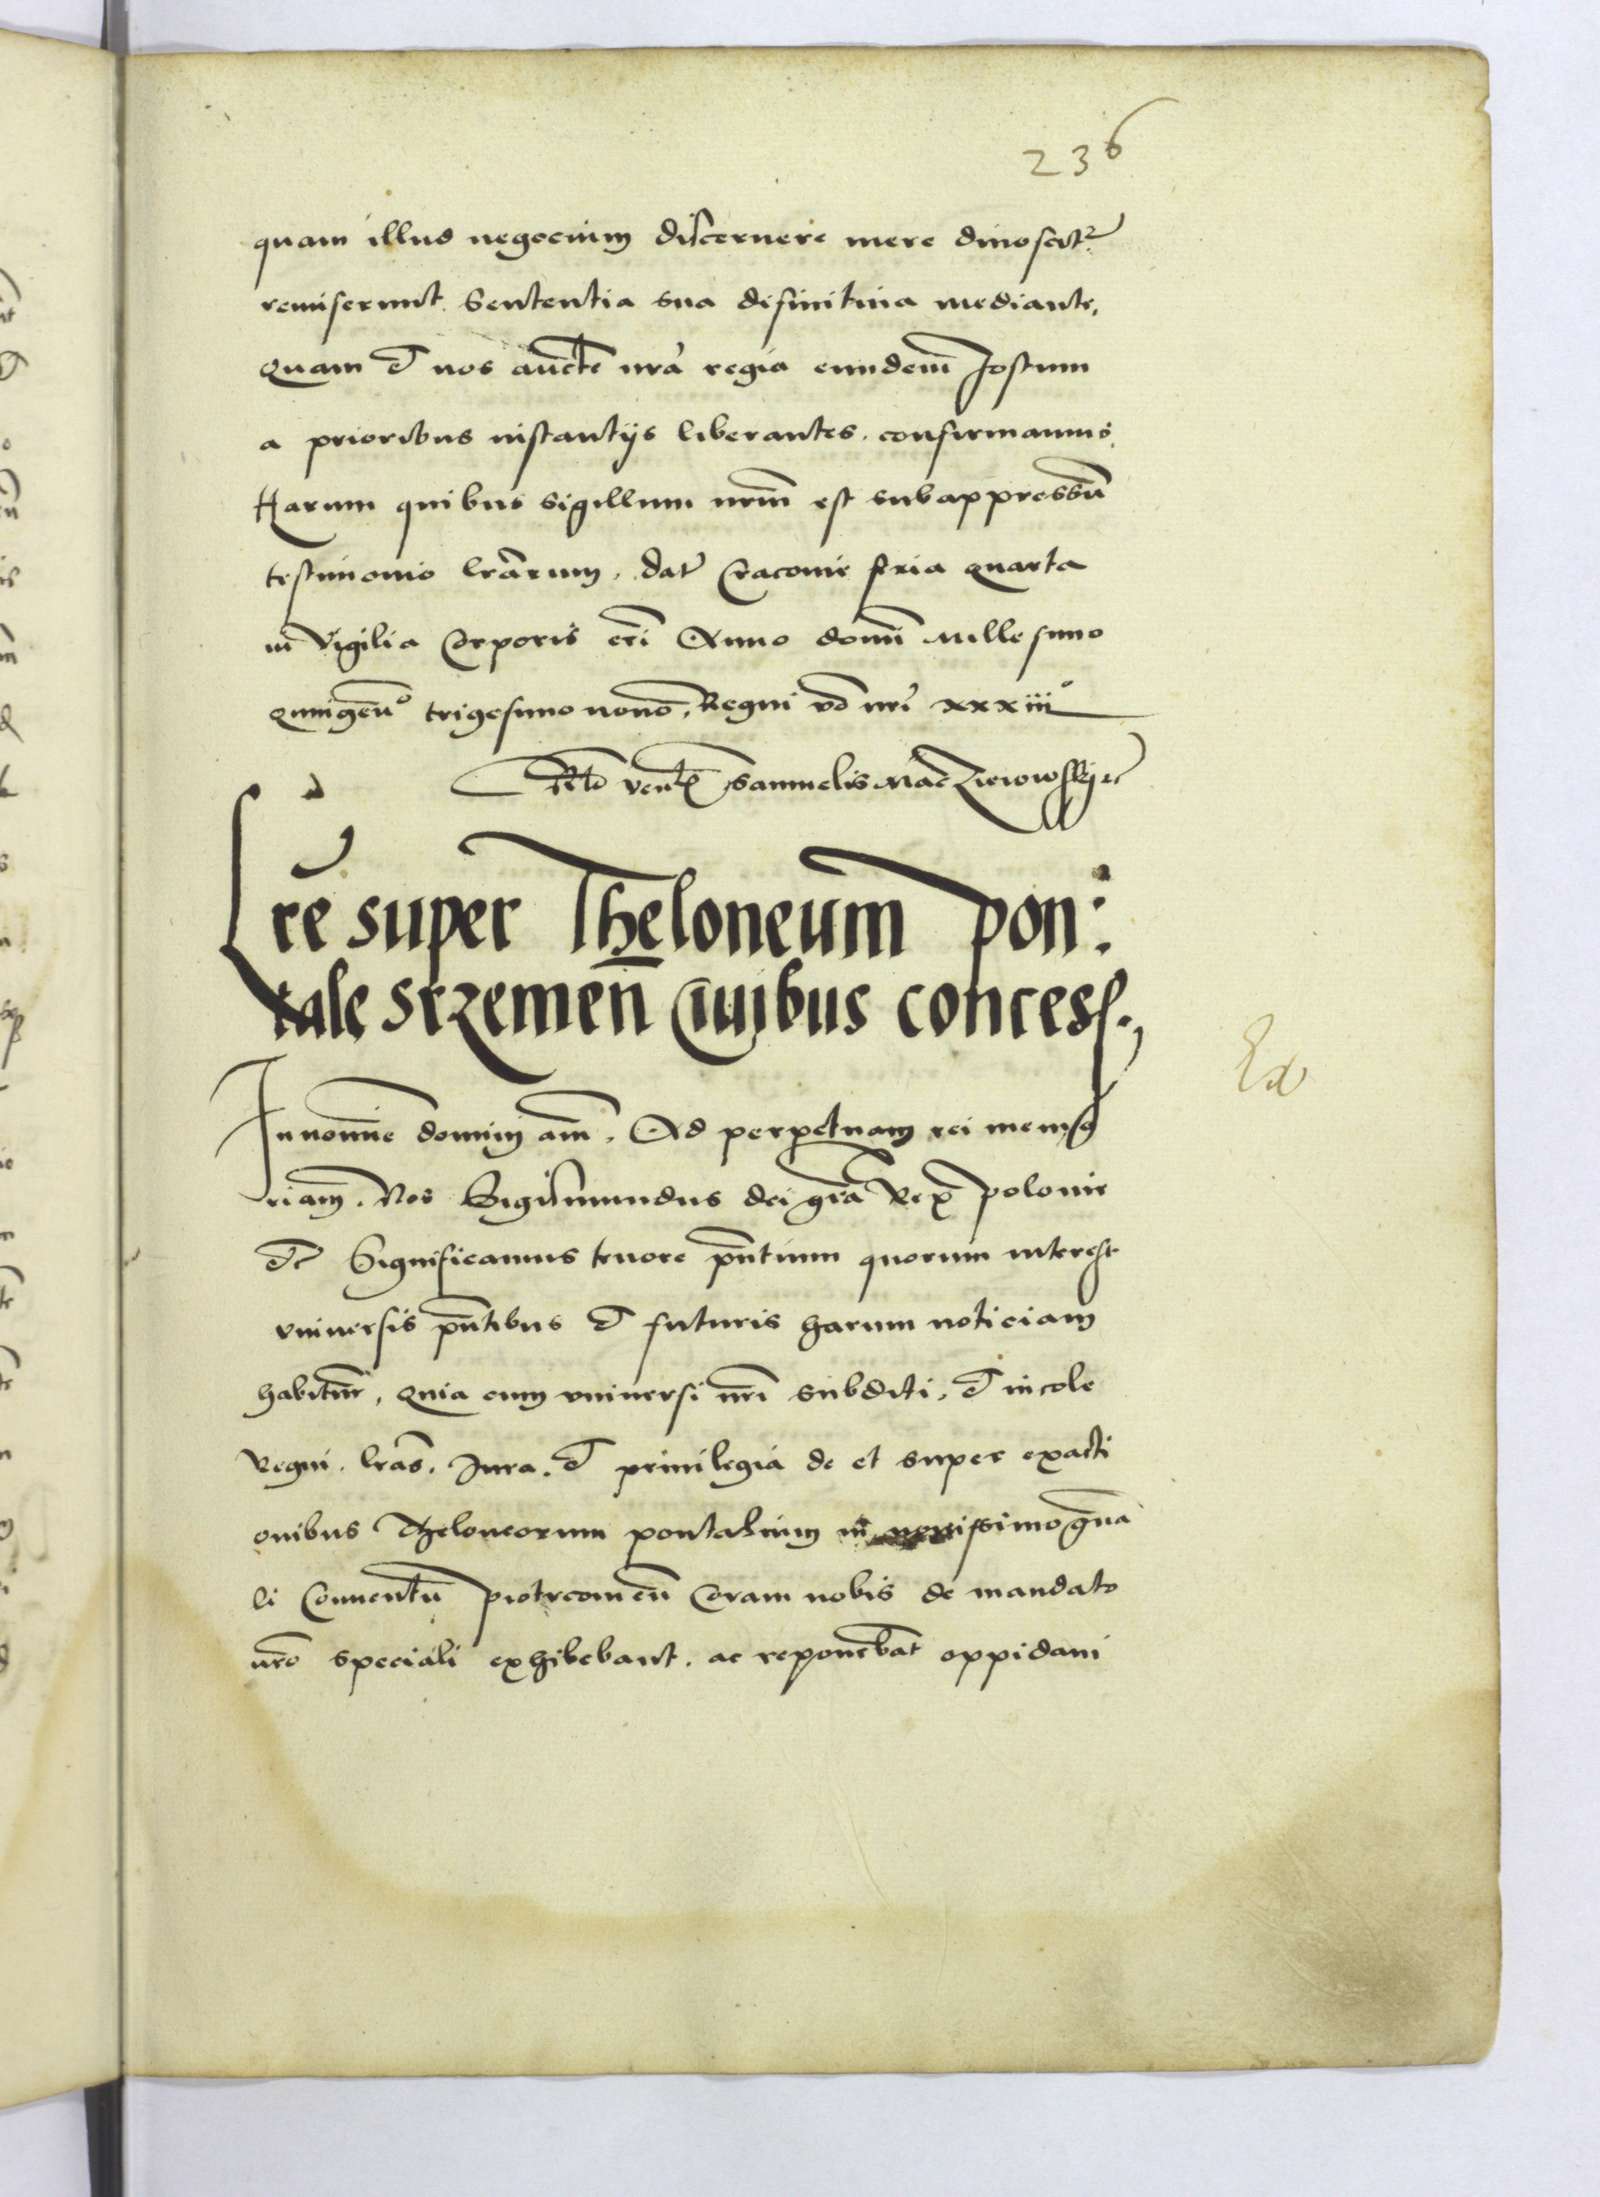 236
quam illud negocium discernere mere dinoscitr
remiserunt. Sententia sua difinitiua mediante,
Quam et nos aucte nra regia eundem Jostum
a prioribus instantijs liberantes. confirmamus
Harum quibus sigillum nrm est subappressu
testimonio lrarum. dat Cracouie feria quarta
in vigilia Corporis cri Anno domi Millesimo
Quingenᵒ trigesimo nono. Regni vo nri xxxiiiᵒ
Rtio ven Samuelis Macziewowskij etc
Lre super Theloneum pon:
tale Srzemen Ciuibus concess.
In nomie domini am. Ad perpetuam rei memo
riam. Nos Sigismundus dei gra Rex polonie
etc Significamus tenore pntium quorum interest
vniuersis pntibus et futuris harum noticiam
habitur, Quia cum vniuersi nri subditi, et incole
Regni. lras. Jura. et priuilegia de et super exacti
onibus Theloneorum pontalium in nouissimo gna
li Conuentu piotrcouien Coram nobis de mandato
nro speciali exhibebant. ac reponebat oppidani
Ex